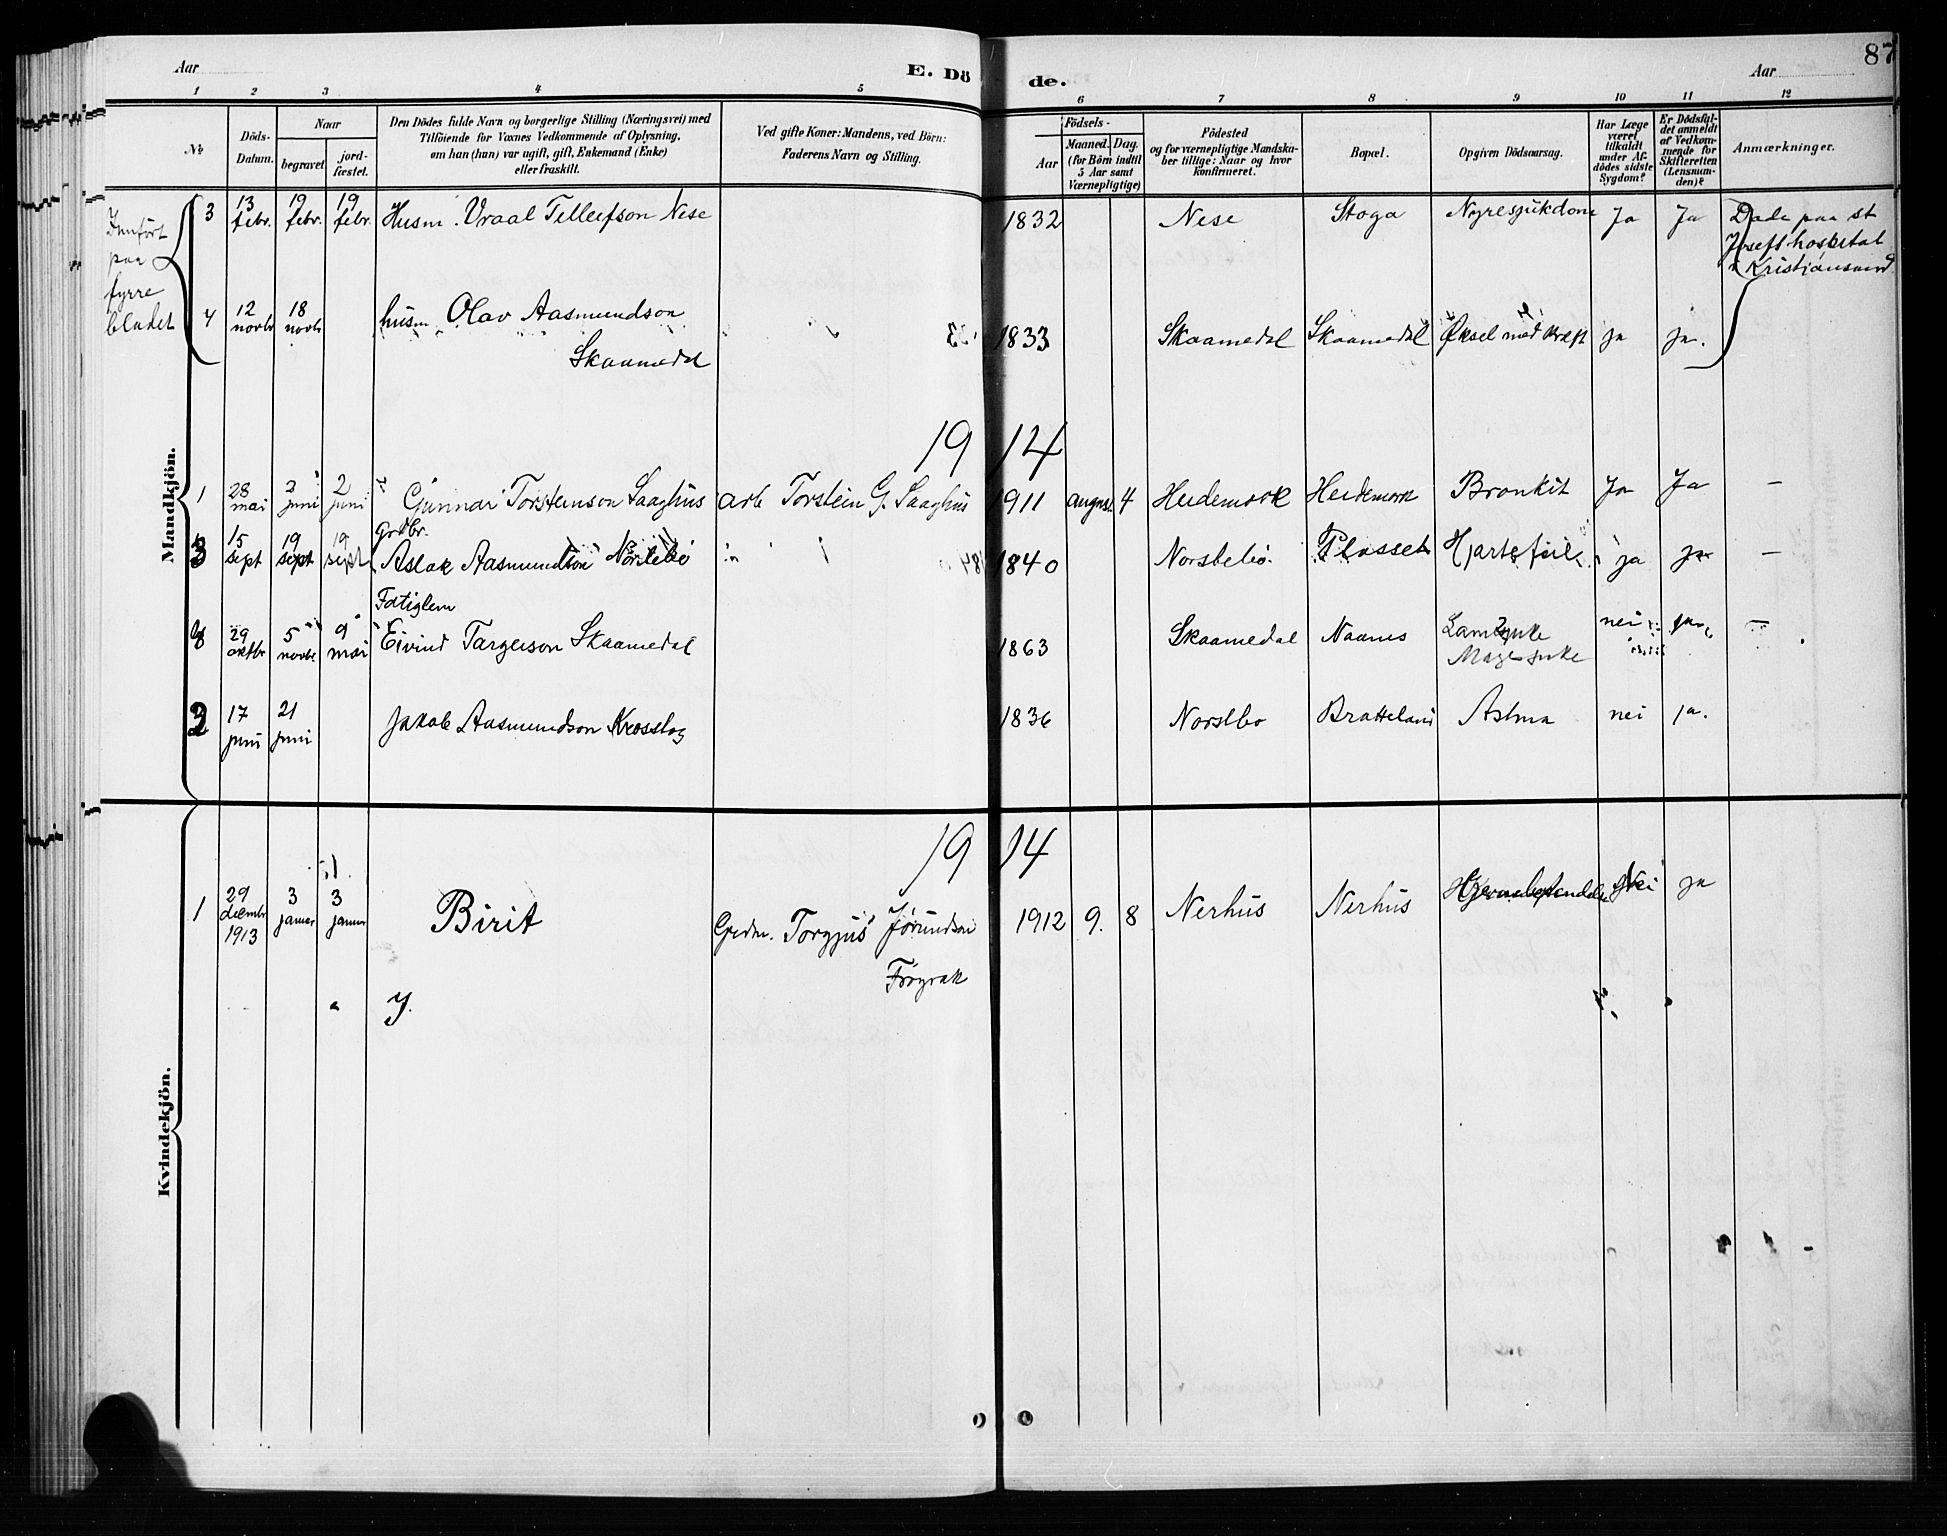 87
Aar
E. Dö
de.
Aar
1 2 3 4 5 6 7 8 9 10 11 12
№
Döds-
Datum.
Naar
begravet.
jord-
fæstet.
Den Dödes fulde Navn og borgerlige Stilling (Næringsvei) med
Tilföiende for Voxnes Vedkommende af Oplysning,
om han (hun) var ugift, gift, Enkemand (Enke)
eller fraskilt.
Ved gifte Koner: Mandens, ved Börn:
Faderens Navn og Stilling.
Födsels-
Aar
Maaned. Dag.
(for Börn indtil
5 Aar samt
Værnepligtige)
Födested
og for værnepligtige Mandska-
ber tillige: Naar og hvor
konfirmeret.
Bopæl.
Opgiven Dödsaarsag.
Har Læge
været
tilkaldt
under Af-
dödes sidste
Sygdom?
Er Dödsfal-
det anmeldt
af Vedkom-
mende for
Skifteretten
(Lensman-
den)?
Anmærkninger.
Mandkjön.
Innfört
paa
fyrre
bladet
3 13 febr. 19 febr. 19 febr. Husm. Vraal Tellefson Nese 1832 Nese Stoga Nyresjukdom Ja Ja Døde paa st
Josefs hospital
i Kristiansand
4 12 novbr 18 novbr husm Olav Aasmundson
Skaamedal 1833 Skaamedal Skaamedal Øksel mod kræft ja ja.
19 14
1 28 mai 2 juni 2 juni Gunnar Torsteinson Saaghus arb Torstein G. Saaghus 1911 august 4 Heidemork Heidemork Bronkit Ja Ja —
Grdbr.
3 15 sept 19 sept 19 sept Aslak Aasmundson Norslebø 1840 Norslebø Flosset Hjartefeil ja ja —
Fatiglem
4 29 oktbr 5 novbr 9 mai Eivind Targeison Skaamedal 1863 Skaamedal Naanes Magesjuke nei ja —
2 17 juni 21 juni Jakob Aasmundson Krosslog 1836 Norslbo Bratteland Astma nei ja.
Kvindekjön.
19 14
1 29 decmbr 1913 3 januar 3 januar Birit Grdm. Torgjus Jørundson
Frøyrak 1912 9. 8 Nerhus Nerhus Nei ja